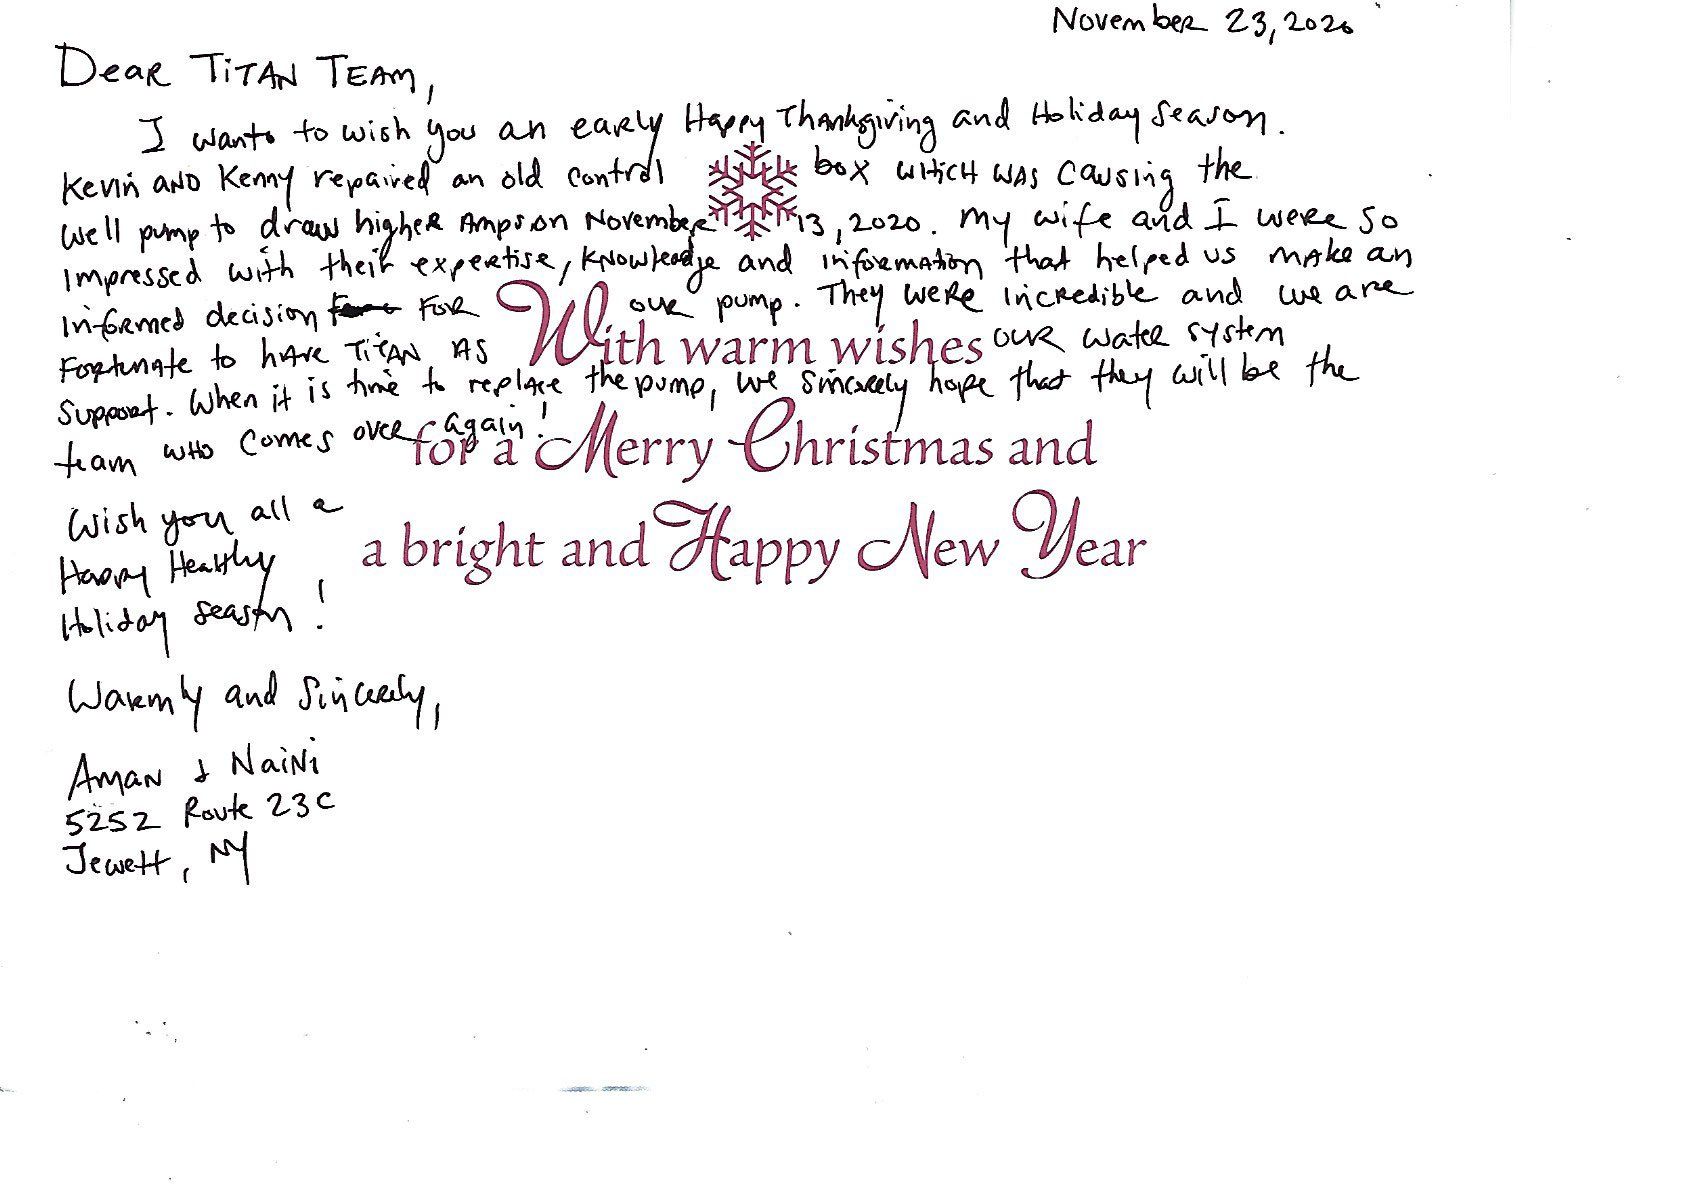 November 23, 2020
Dear TiTAN TEAM,
I want to wish you an early Happy Thanksgiving and Holiday Season.
Kevin AND Kenny repaired an old control box which was causing the
well pump to draw higher Amps on November 13, 2020. My wife and I were so
impressed with their expertise, knowleadge and information that helped us make an
informed decision for our pump. They were incredible and we are
fortunate to have TiTAN as our water system
support. When it is time to replace the pump, we sincerely hope that they will be the
team who comes over again!
With warm wishes
for a Merry Christmas and
a bright and Happy New Year
Wish you all a
Happy Healthy
Holiday season!
Warmly and Sincerely,
Aman & Naini
5252 Route 23C
Jewett, NY